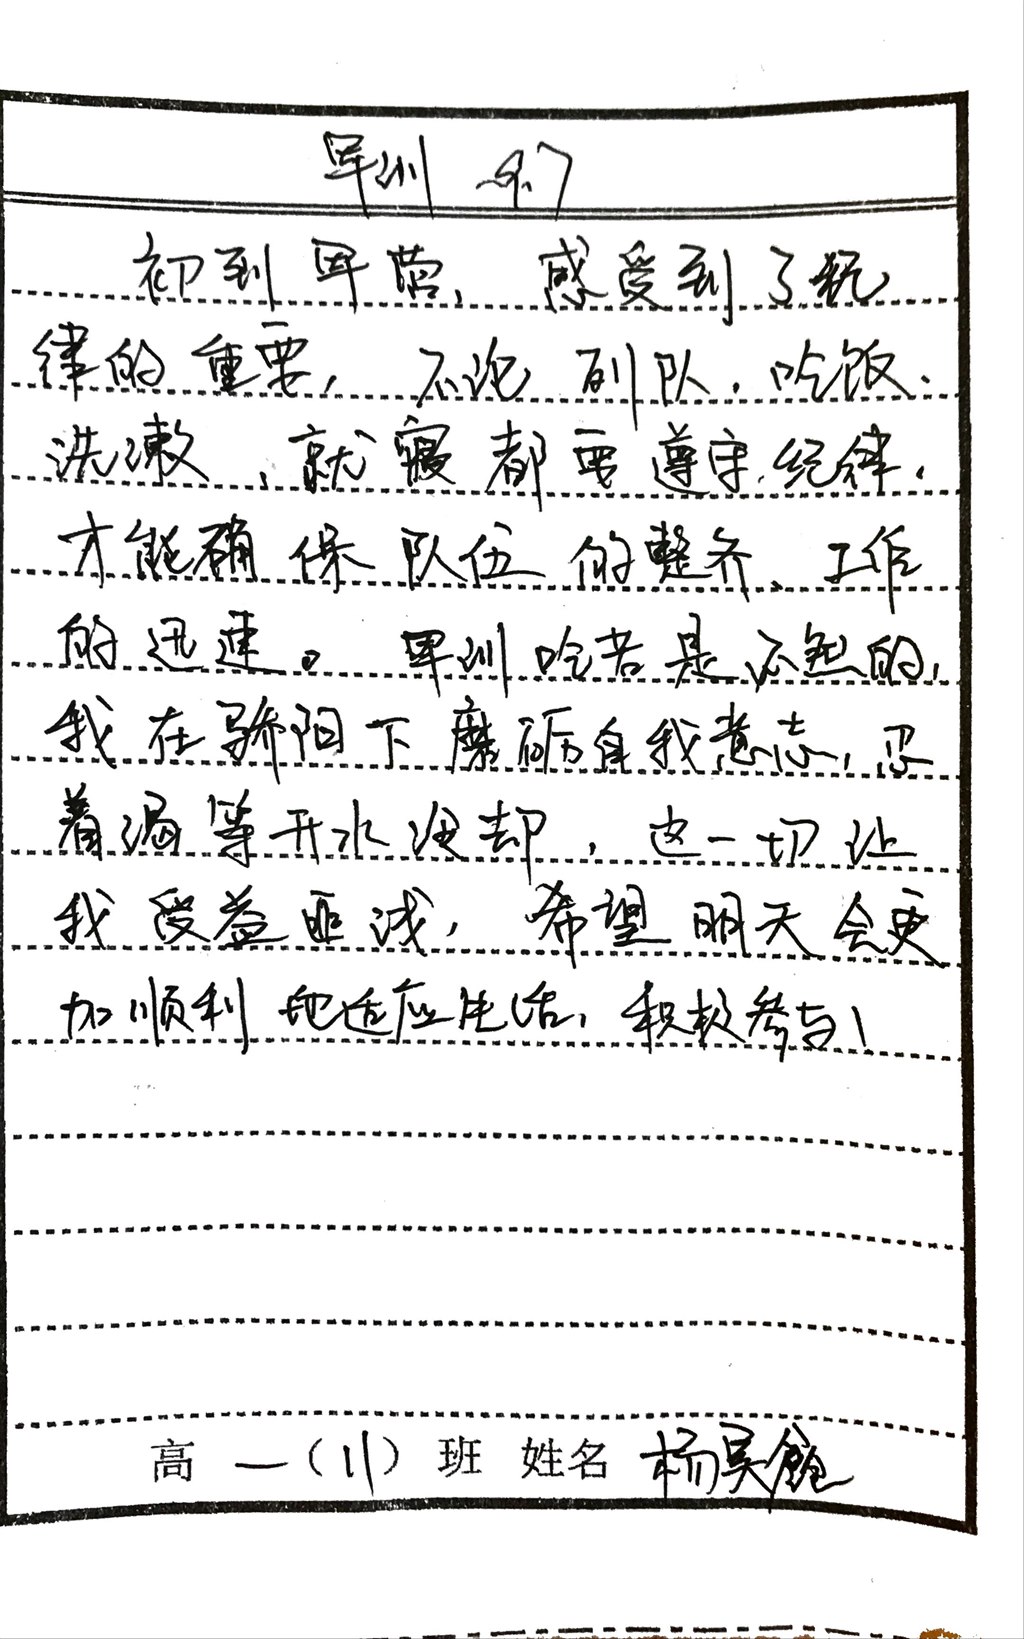 军训
初到军营，感受到了纪
律的重要，不论列队，吃饭、
洗漱，就寝都要遵守纪律，
才能确保队伍的整齐、工作
的迅速。军训吃苦是必然的，
我在骄阳下磨砺自我意志，忍
着渴等开水冷却，这一切让
我受益匪浅，希望明天会更
加顺利地适应生活，积极参与！
高一（11）班 姓名 杨昊